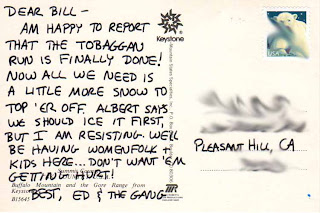 DEAR BILL -
AM HAPPY TO REPORT
THAT THE TOBAGGAN
RUN IS FINALLY DONE!
NOW ALL WE NEED IS
A LITTLE MORE SNOW TO
TOP 'ER OFF. ALBERT SAYS
WE SHOULD ICE IT FIRST,
BUT I AM RESISTING. WE'LL
BE HAVING WOMENFOLK +
KIDS HERE... DON'T WANT 'EM
GETTING HURT!
BEST, ED & THE GANG
Buffalo Mountain and the Gore Range from
Keystone
B15641
Keystone
USA
PLEASANT HILL, CA